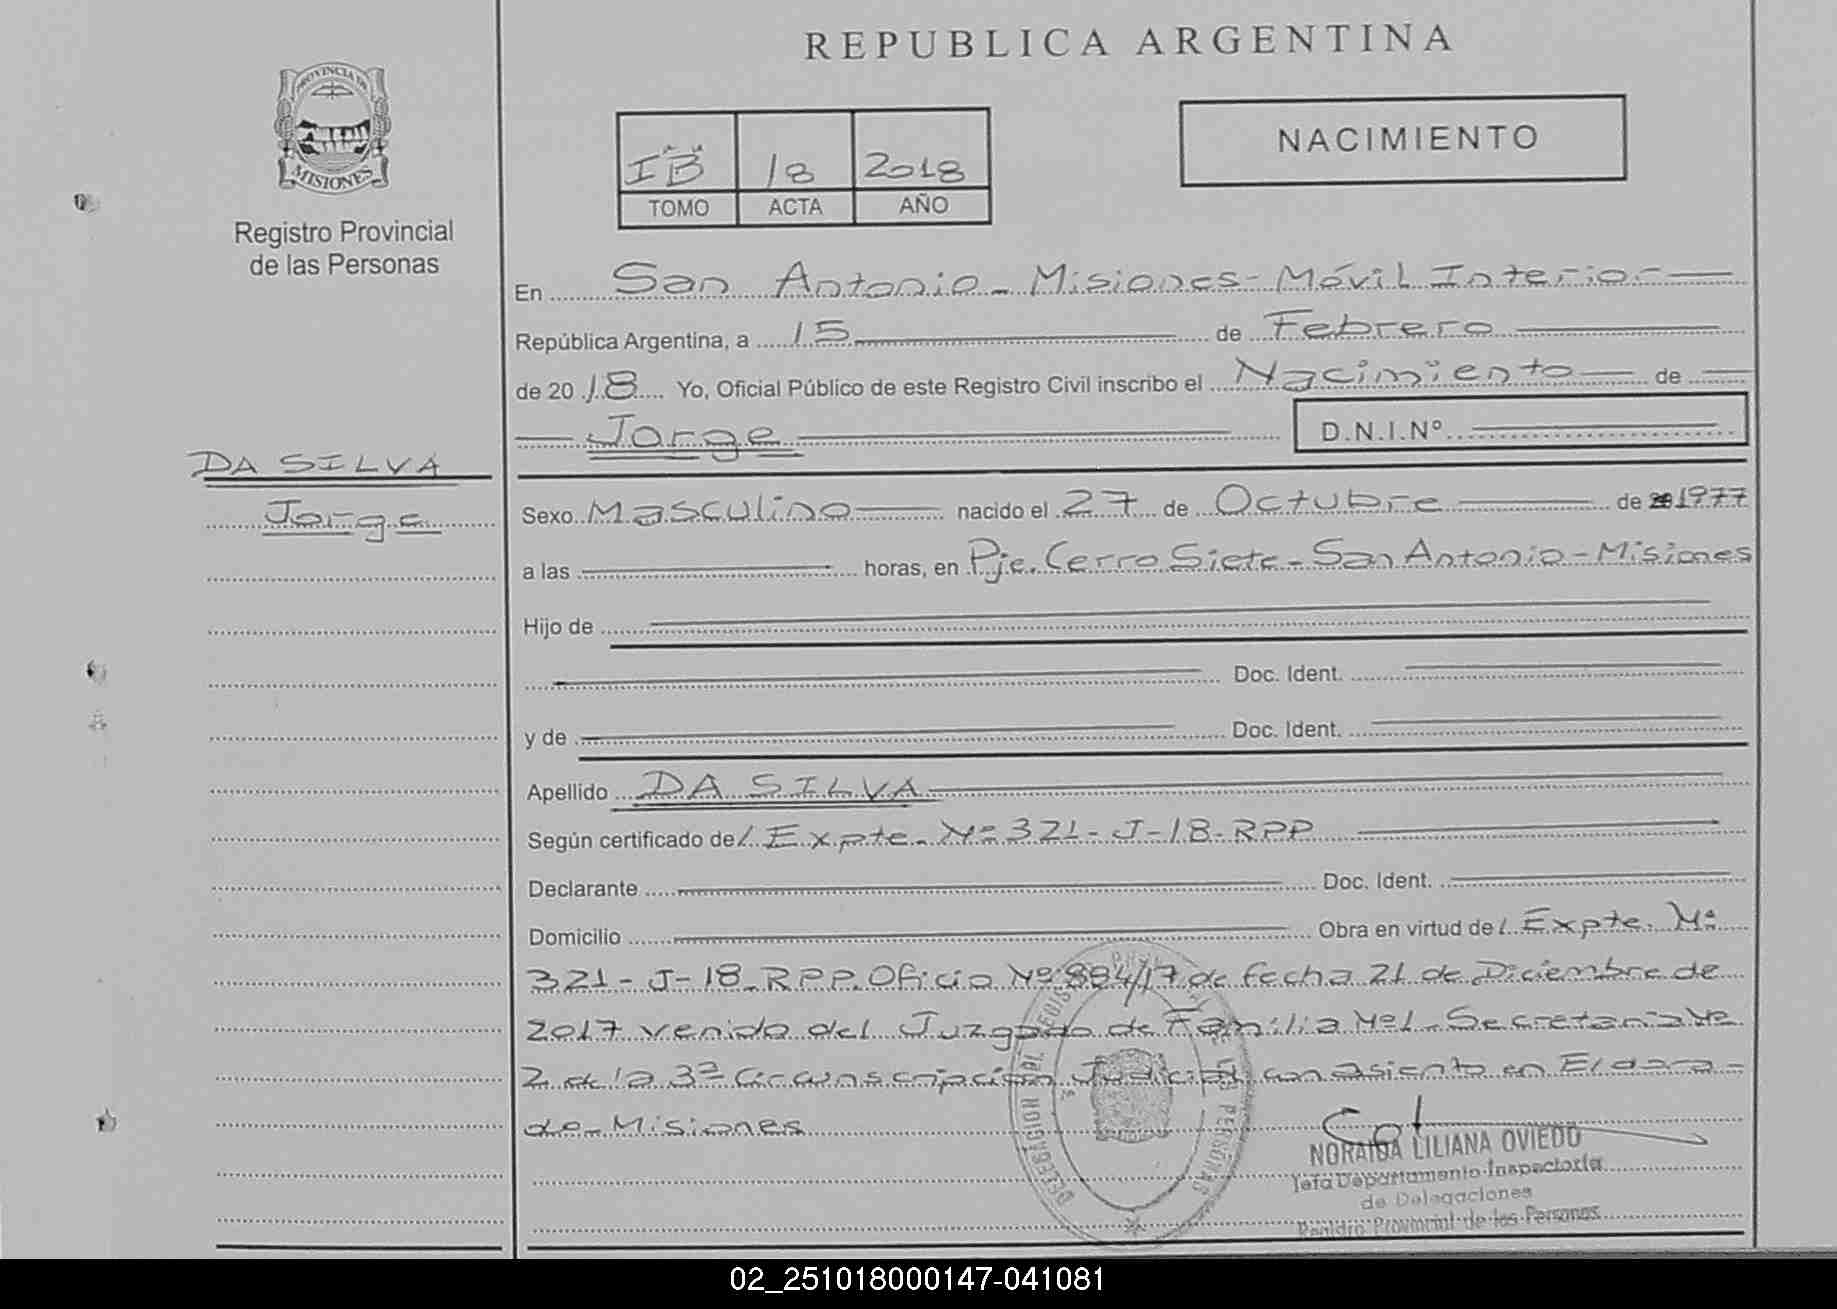 REPUBLICA ARGENTINA
PROVINCIA DE
MISIONES
Registro Provincial
de las Personas
I "B" 18 2018
TOMO ACTA AÑO
NACIMIENTO
En San Antonio - Misiones - Móvil Interior
República Argentina, a 15 de Febrero
de 2018 Yo, Oficial Público de este Registro Civil inscribo el Nacimiento de
Jorge D.N.I.Nº
DA SILVA
Jorge
Sexo Masculino nacido el 27 de Octubre de 1977
a las horas, en Pje. Cerro Siete - San Antonio - Misiones
Hijo de
Doc. Ident.
y de Doc. Ident.
Apellido DA SILVA
Según certificado de/ Expte. Nº 321-J-18-RPP
Declarante Doc. Ident.
Domicilio Obra en virtud de/ Expte. Nº
321-J-18-RPP. Oficio Nº 884/17 de fecha 21 de Diciembre de
2017 venido del Juzgado de Familia Nº1 - Secretaria Nº
2 de la 3ª Circunscripción Judicial con asiento en Eldora-
do - Misiones
NORAIDA LILIANA OVIEDO
Jefa Departamento Inspectoría
de Delegaciones
Registro Provincial de las Personas
02_251018000147-041081